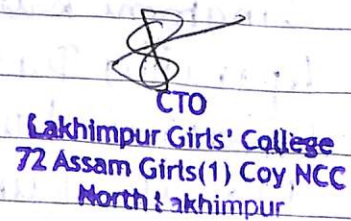 CTO
Lakhimpur Girls' College
72 Assam Girls(1) Coy NCC
North Lakhimpur